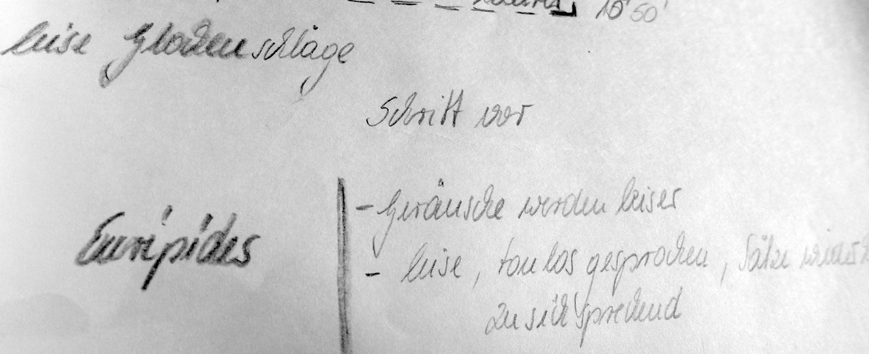 10'50'
leise Glockenschläge
Schritt vor
Euripides
- Geräusche werden leiser
- leise, tonlos gesprochen, Sätze
zu sich sprechend